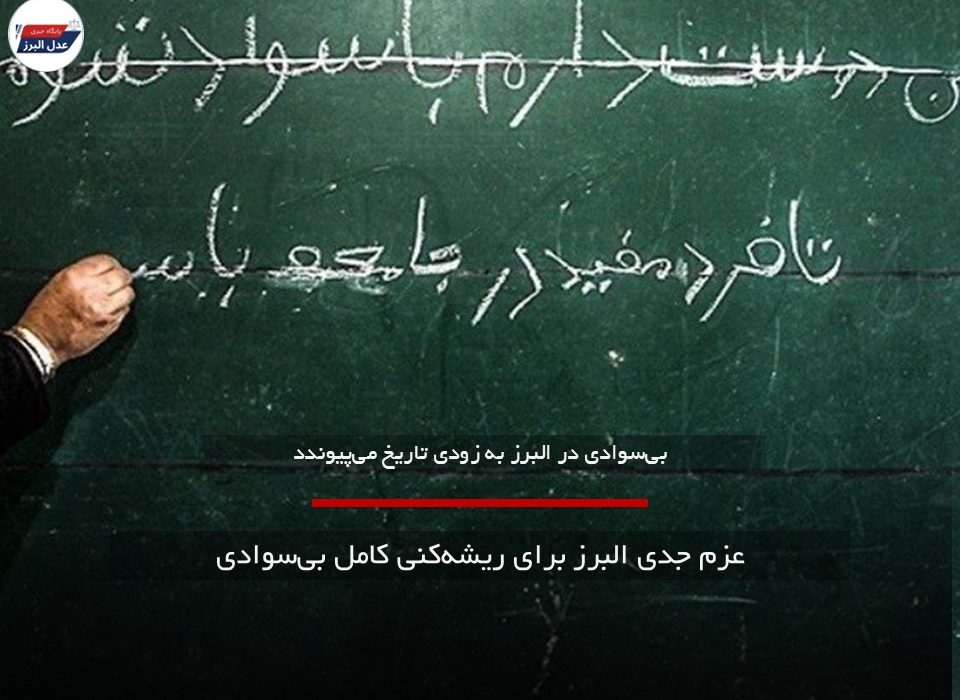 پایگاه خبری
عدل البرز
من دوست دارم با سواد شوم
تا فرد مفید در جامعه باس
بی‌سوادی در البرز به زودی تاریخ می‌پیوندد
عزم جدی البرز برای ریشه‌کنی کامل بی‌سوادی